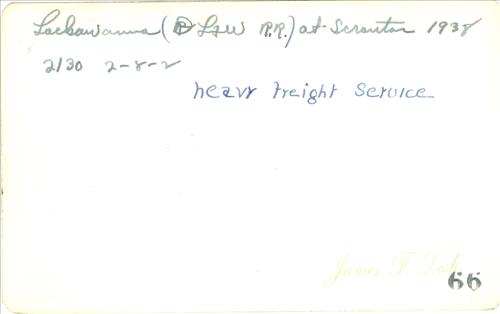 Lackawanna (D L&W R.R.) at Scranton 1938
2130 2-8-2
heavy freight service
James F.
66